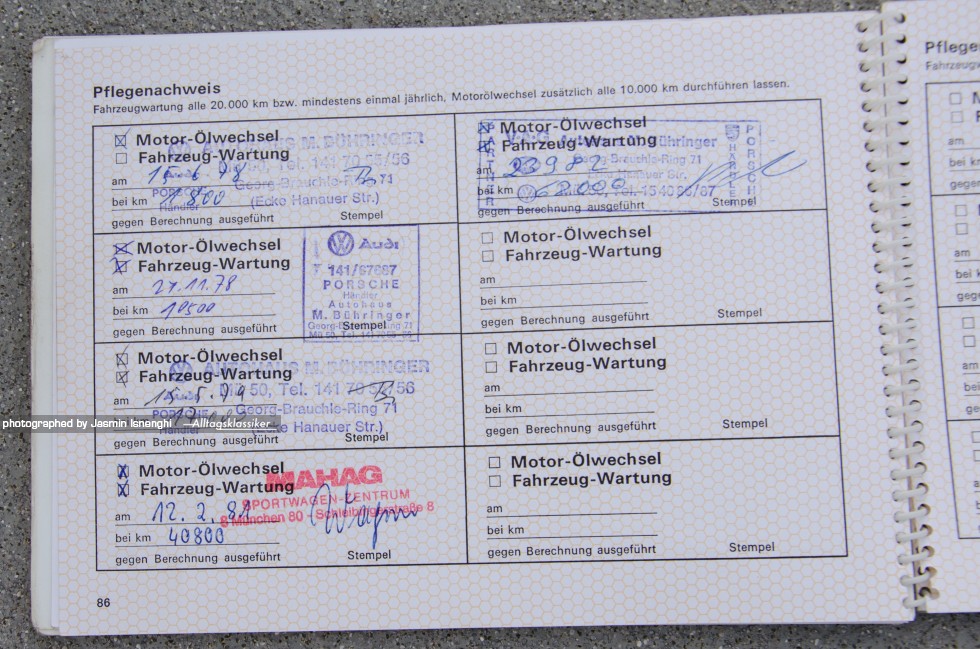 Pflegenachweis
Fahrzeugwartung alle 20.000 km bzw. mindestens einmal jährlich, Motorölwechsel zusätzlich alle 10.000 km durchführen lassen.
Motor-Ölwechsel
Fahrzeug-Wartung
AUTOHAUS M. BÜHRINGER
Mü 50, Tel. 141 70 55/56
Georg-Brauchle-Ring 71
(Ecke Hanauer Str.)
PORSCHE
Händler
am 15.6.78
bei km 11800
gegen Berechnung ausgeführt
Stempel
Motor-Ölwechsel
Fahrzeug-Wartung
Audi
141/67687
PORSCHE
Händler
Autohaus
M. Bühringer
Georg-Brauchle-Ring 71
am 27.11.78
bei km 19500
gegen Berechnung ausgeführt
Stempel
Motor-Ölwechsel
Fahrzeug-Wartung
AUTOHAUS M. BÜHRINGER
Mü 50, Tel. 141 70 55/56
Georg-Brauchle-Ring 71
(Ecke Hanauer Str.)
PORSCHE
Händler
am 15.5.79
bei km
gegen Berechnung ausgeführt
Stempel
Motor-Ölwechsel
Fahrzeug-Wartung
MAHAG
SPORTWAGEN-ZENTRUM
8 München 80 - Schleibingerstraße 8
am 12.2.81
bei km 40800
gegen Berechnung ausgeführt
Stempel
86
Motor-Ölwechsel
Fahrzeug-Wartung
PARTNER
V·A·G Autohaus Bühringer
Georg-Brauchle-Ring 71
Ecke Hanauer Str.
PORSCHE
HÄNDLER
am 23982
bei km 62000
gegen Berechnung ausgeführt
Stempel
Motor-Ölwechsel
Fahrzeug-Wartung
am
bei km
gegen Berechnung ausgeführt
Stempel
Motor-Ölwechsel
Fahrzeug-Wartung
am
bei km
gegen Berechnung ausgeführt
Stempel
Motor-Ölwechsel
Fahrzeug-Wartung
am
bei km
gegen Berechnung ausgeführt
Stempel
photographed by Jasmin Isnenghi — Alltagsklassiker